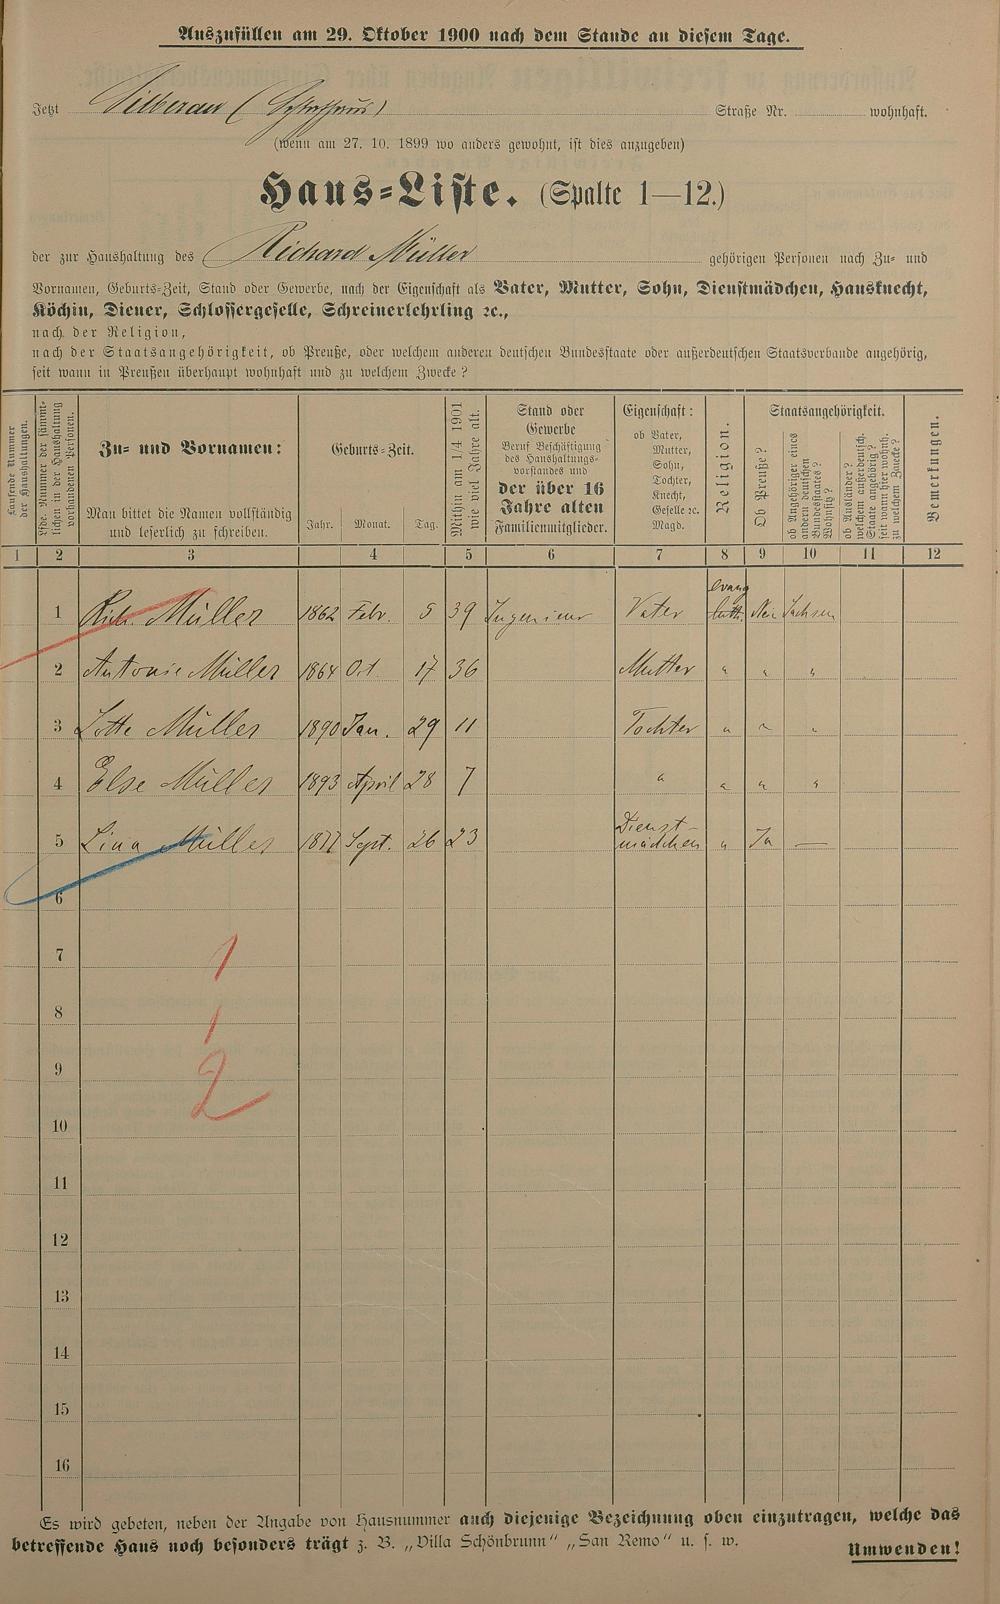 Auszufüllen am 29. Oktober 1900 nach dem Stande an diesem Tage.
Jetzt Silberau ( ) Straße Nr. wohnhaft.
(wenn am 27. 10. 1899 wo anders gewohnt, ist dies anzugeben)
Haus-Liste. (Spalte 1—12.)
der zur Haushaltung des Richard Müller gehörigen Personen nach Zu- und
Vornamen, Geburts-Zeit, Stand oder Gewerbe, nach der Eigenschaft als Vater, Mutter, Sohn, Dienstmädchen, Hausknecht,
Köchin, Diener, Schlossergeselle, Schreinerlehrling ꝛc.,
nach der Religion,
nach der Staatsangehörigkeit, ob Preuße, oder welchem anderen deutschen Bundesstaate oder außerdeutschen Staatsverbande angehörig,
seit wann in Preußen überhaupt wohnhaft und zu welchem Zwecke?
Laufende Nummer
der Haushaltungen.
Lfde. Nummer der sämmt-
lichen in der Haushaltung
vorhandenen Personen.
Zu- und Vornamen:
Man bittet die Namen vollständig
und leserlich zu schreiben.
Geburts-Zeit.
Jahr. Monat. Tag.
Mithin am 1/4 1901
wie viel Jahre alt.
Stand oder
Gewerbe
Beruf Beschäftigung
des Haushaltungs-
vorstandes und
der über 16
Jahre alten
Familienmitglieder.
Eigenschaft:
ob Vater,
Mutter,
Sohn,
Tochter,
Knecht,
Geselle ꝛc.
Magd.
Religion.
Staatsangehörigkeit.
Ob Preuße?
ob Angehöriger eines
andern deutschen
Bundesstaates?
Wohnsitz?
ob Ausländer?
welchem außerdeutsch.
Staate angehörig?
seit wann hier wohnh.
zu welchem Zwecke?
Bemerkungen.
1 2 3 4 5 6 7 8 9 10 11 12
1 Rich. Müller 1862 Febr. 5 39 Ingenieur Vater evang luth. Nein Sachsen
2 Antonie Müller 1864 Oct. 17 36 Mutter " " "
3 Lotte Müller 1890 Jan. 29 11 Tochter " " "
4 Else Müller 1893 April 28 7 " " " "
5 Lina Müller 1877 Sept. 26 23 Dienst-
mädchen " Ja —
6
7
1
8
1
9
2
10
11
12
13
14
15
16
Es wird gebeten, neben der Angabe von Hausnummer auch diejenige Bezeichnung oben einzutragen, welche das
betreffende Haus noch besonders trägt z. B. „Villa Schönbrunn" „San Remo" u. s. w.
Umwenden!